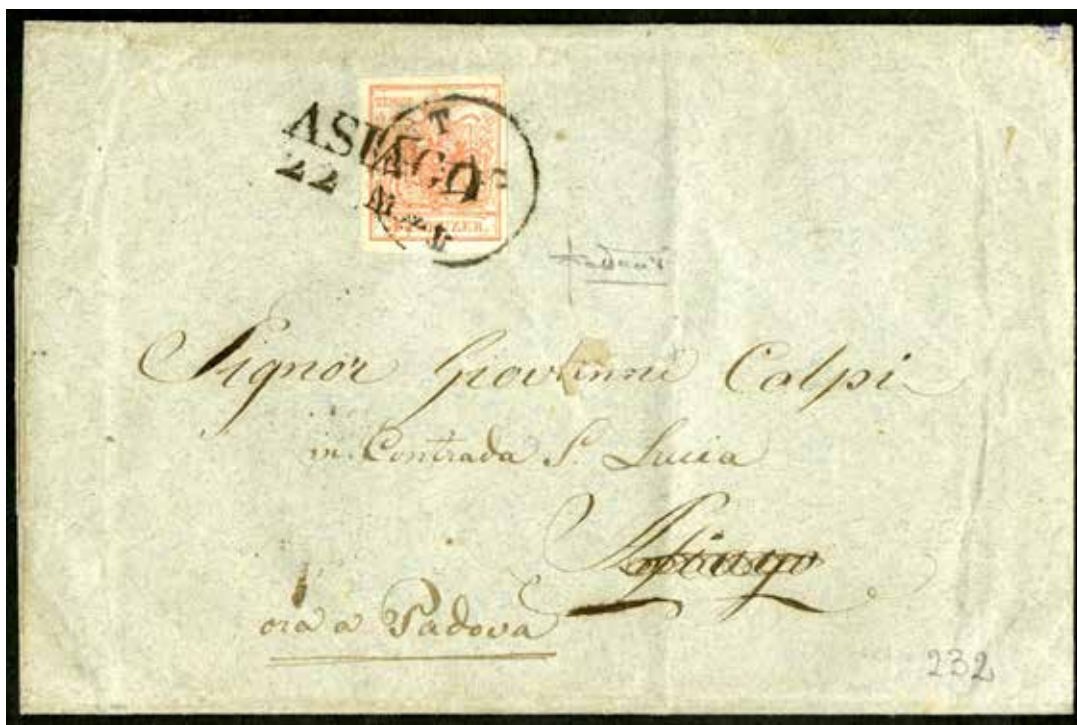 ASIAGO
22
KREUZER.
Signor Giovanni Calpi
in Contrada S. Lucia
Asiago
ora a Padova
232